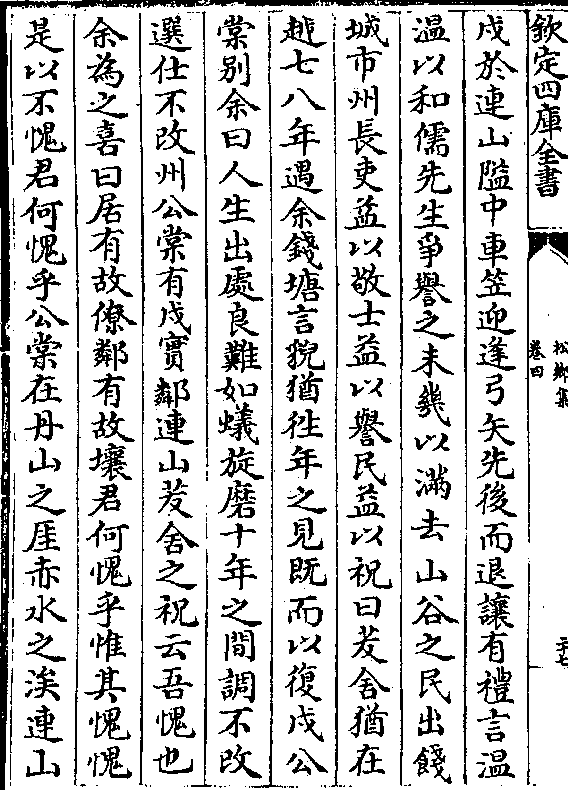 欽定四庫全書
松鄉集
卷四
戍於連山隘中車笠迎逢弓矢先後而退讓有禮言溫
溫以和儒先生爭譽之未幾以滿去山谷之民出餞
城市州長吏益以敬士益以譽民益以祝曰茇舍猶在
越七八年遇余錢塘言貌猶徃年之見既而以復戍公
棠別余曰人生出處良難如蟻旋磨十年之間調不改
選仕不改州公棠有戍實鄰連山茇舍之祝云吾愧也
余為之喜曰居有故僚鄰有故壤君何愧乎惟其愧愧
是以不愧君何愧乎公棠在丹山之厓赤水之涘連山